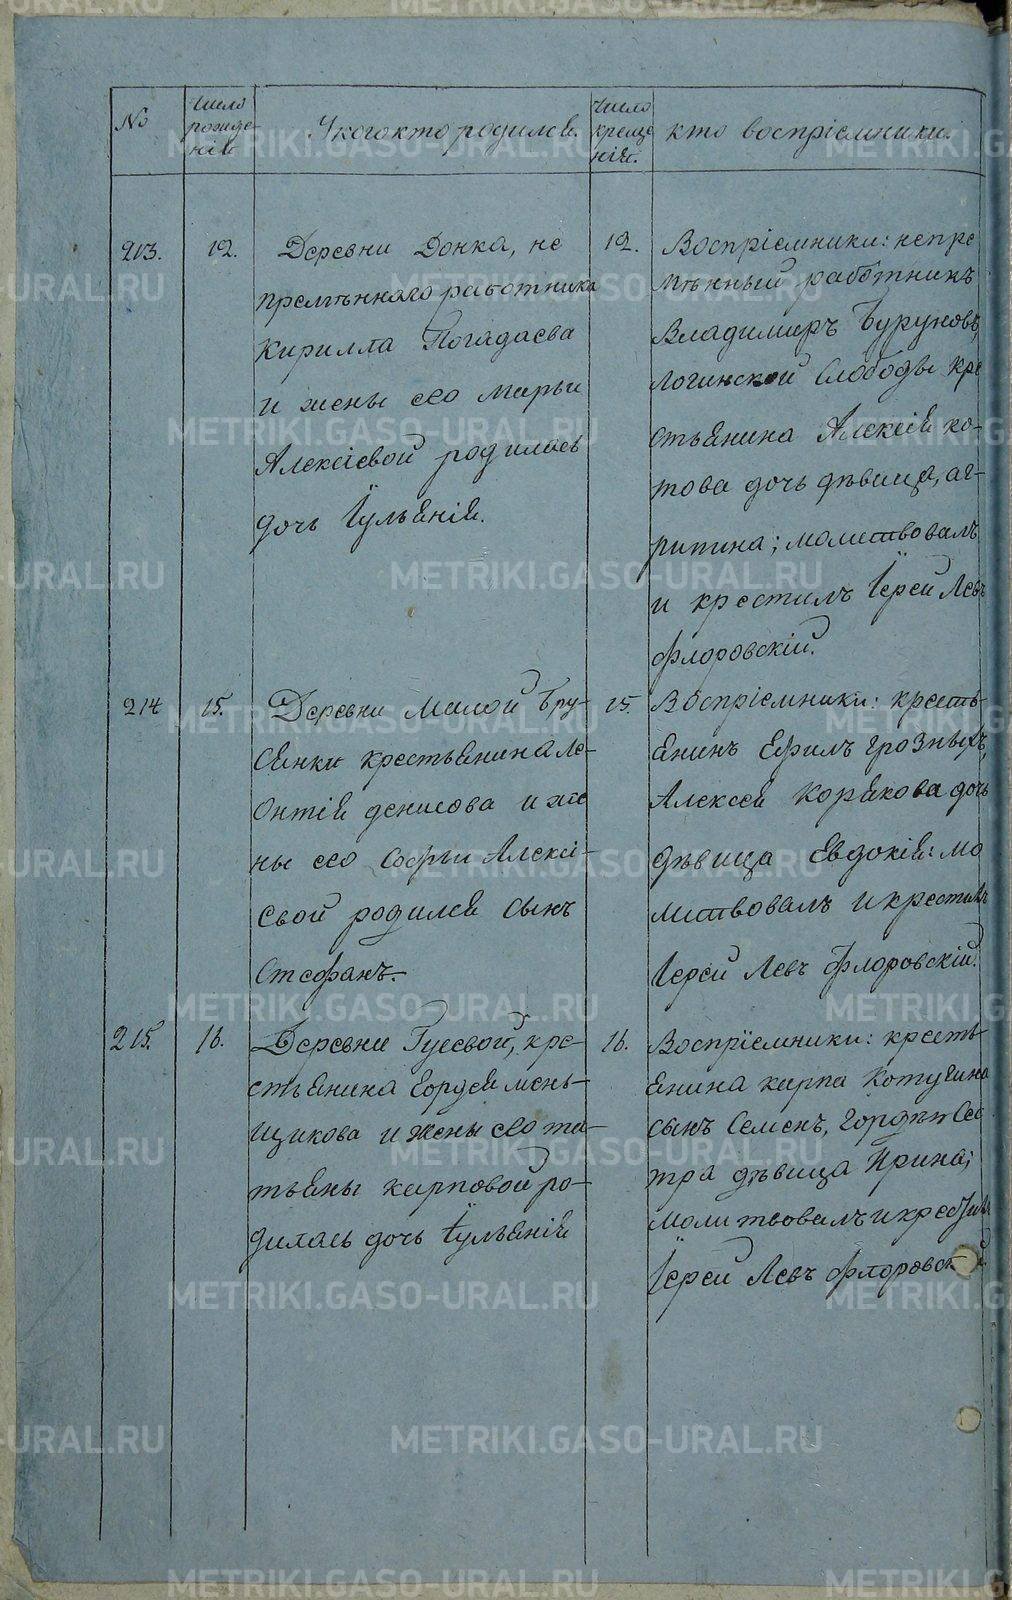 №
Число рожде-нія
У кого кто родился.
Число креще-нія.
кто воспріемники.
213.
12.
Деревни Донка, не
премѣннаго работника
Кирилла Погадаева
и жены его Марьи
Алексіевой родилась
дочь Іуліянія.
12.
Воспріемники: непре
мѣнный работникъ
Владимиръ Буруновъ,
Логинской Слободы кре
стьянина Алексія ко-
това дочь дѣвица, аг-
рипина; молитвовалъ
и крестилъ Іерей Левъ
Флоровскій.
214
15.
Деревни Малой Бру-
сянки крестьянина Ле-
онтія денисова и же
ны его Софьи Алексі-
евой родился сынъ
Стефанъ.
15.
Воспріемники: кресть-
янинъ Ефимъ грозныхъ,
Алексея Корякова дочь
дѣвица Евдокія: мо
литвовалъ и крестилъ
Іерей Левъ Флоровскій.
215.
16.
Деревни Гусевой, кре-
стьянина Гордея мень-
щикова и жены его та-
тьяны карповой ро-
дилась дочь Іуліянія
16.
Воспріемники: кресть-
янина карпа Котугина
сынъ Семенъ, Гордѣя Сес
тра дѣвица Ирина;
молитвовалъ и крестилъ
Іерей Левъ Флоровскій
METRIKI.GASO-URAL.RU